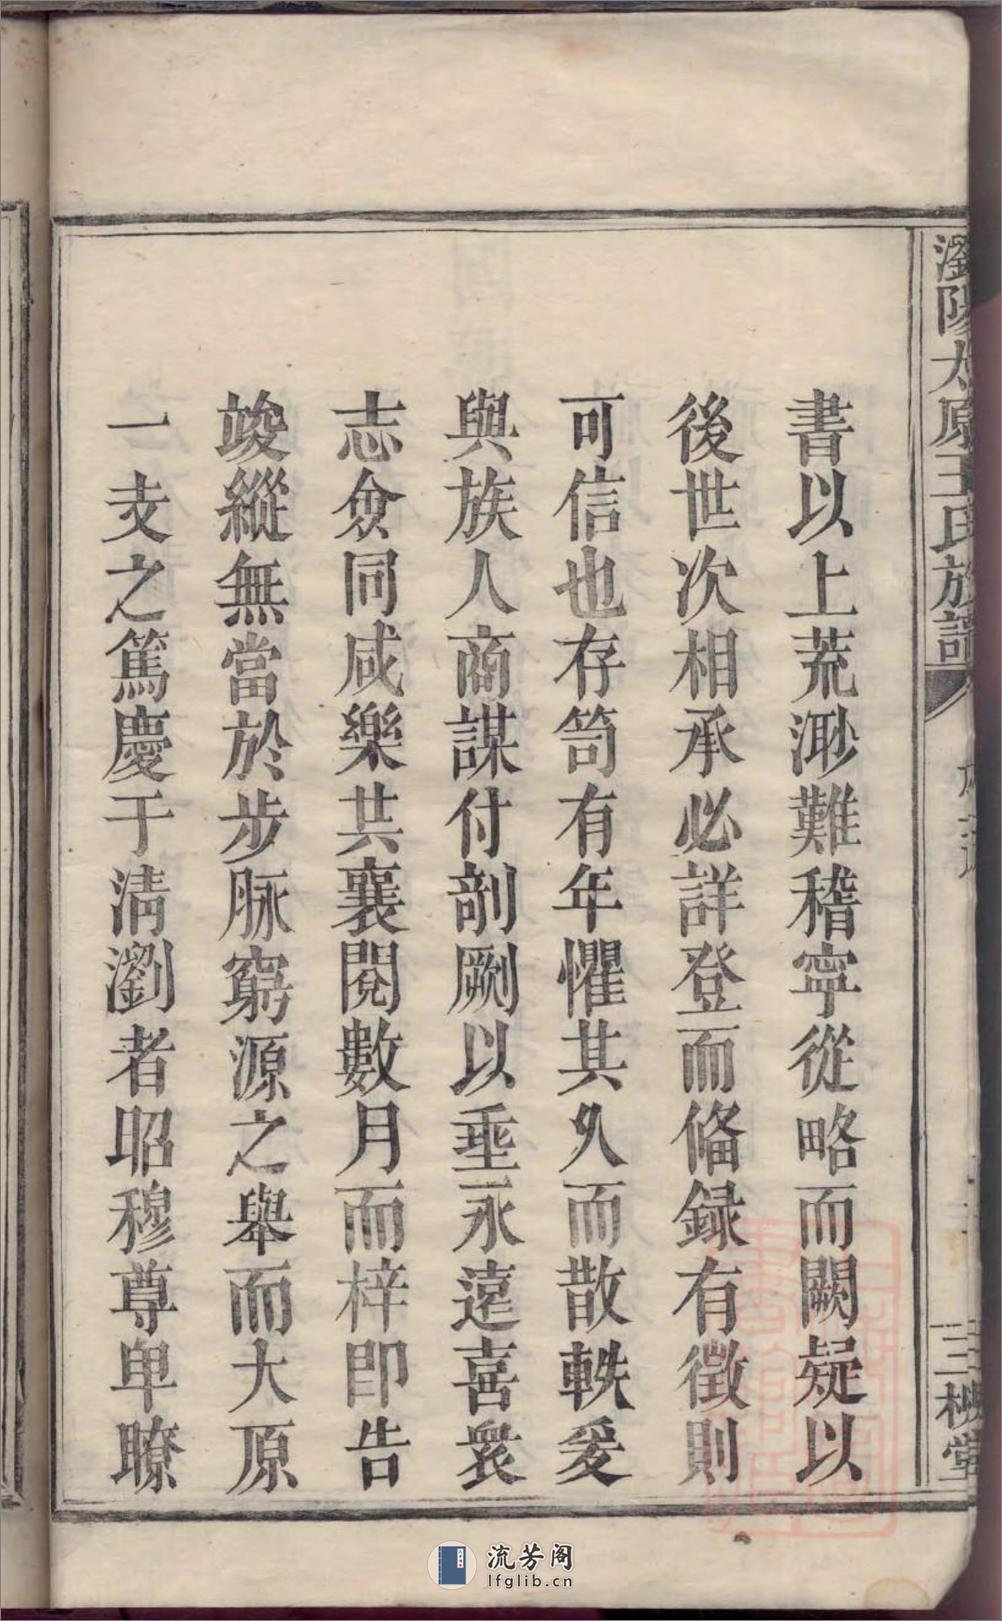 瀏陽太原王氏族譜
三槐堂
書以上荒渺難稽寧從略而闕疑以
後世次相承必詳登而偹録有徵則
可信也存笥有年懼其久而散軼爰
與族人商謀付剞劂以垂永遠喜衆
志僉同咸樂共襄閱數月而梓卽告
竣縱無當於步脉窮源之舉而大原
一支之篤慶于清瀏者昭穆尊卑瞭
流芳阁
lfglib.cn